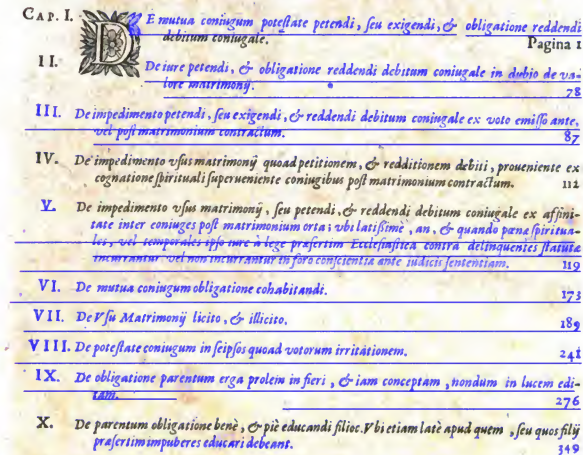 CAP. I. DE mutua coniugum poteſtate petendi, ſeu exigendi, & obligatione reddendi
debitum coniugale. Pagina 1
II. De iure petendi, & obligatione reddendi debitum coniugale in dubio de va-
lore matrimonij. 78
III. De impedimento petendi, ſeu exigendi, & reddendi debitum coniugale ex voto emiſſo ante,
vel poſt matrimonium contractum. 87
IV. De impedimento vſus matrimonij quoad petitionem, & redditionem debiti, proueniente ex
cognatione ſpirituali ſuperueniente coniugibus poſt matrimonium contractum. 112
V. De impedimento vſus matrimonij, ſeu petendi, & reddendi debitum coniugale ex affini-
tate inter coniuges poſt matrimonium orta; vbi latiſſimè, an, & quando pœnæ ſpiritua-
les, vel temporales ipſo iure à lege præſertim Eccleſiaſtica contra delinquentes ſtatutæ
incurrantur vel non incurrantur in foro conſcientiæ ante iudicis ſententiam. 119
VI. De mutua coniugum obligatione cohabitandi. 173
VII. De Vſu Matrimonij licito, & illicito. 189
VIII. De poteſtate coniugum in ſeipſos quoad votorum irritationem. 241
IX. De obligatione parentum erga prolem in fieri, & iam conceptam, nondum in lucem edi-
tam. 276
X. De parentum obligatione benè, & piè educandi filios. Vbi etiam latè apud quem, ſeu quos filij
præſertim impuberes educari debeant. 349